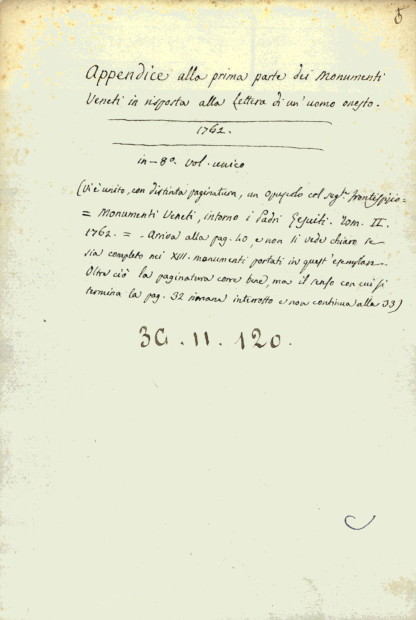 5
Appendice alla prima parte dei Monumenti
Veneti in risposta alla Lettera di un' uomo onesto.
1762.
in-8º. vol. unico
(Vi è unito, con distinta paginatura, un opuscolo col segte. frontispizio-
= Monumenti Veneti, intorno i Padri Gesuiti. Tom. II.
1762. = - Arriva alla pag. 40, e non si vede chiaro se
sia completo nei XIII. monumenti portati in quest' esemplare.
Oltre ciò la paginatura corre bene, ma il senso con cui si
termina la pag. 32 rimane interrotto e non continua alla 33)
3G. 11. 120.